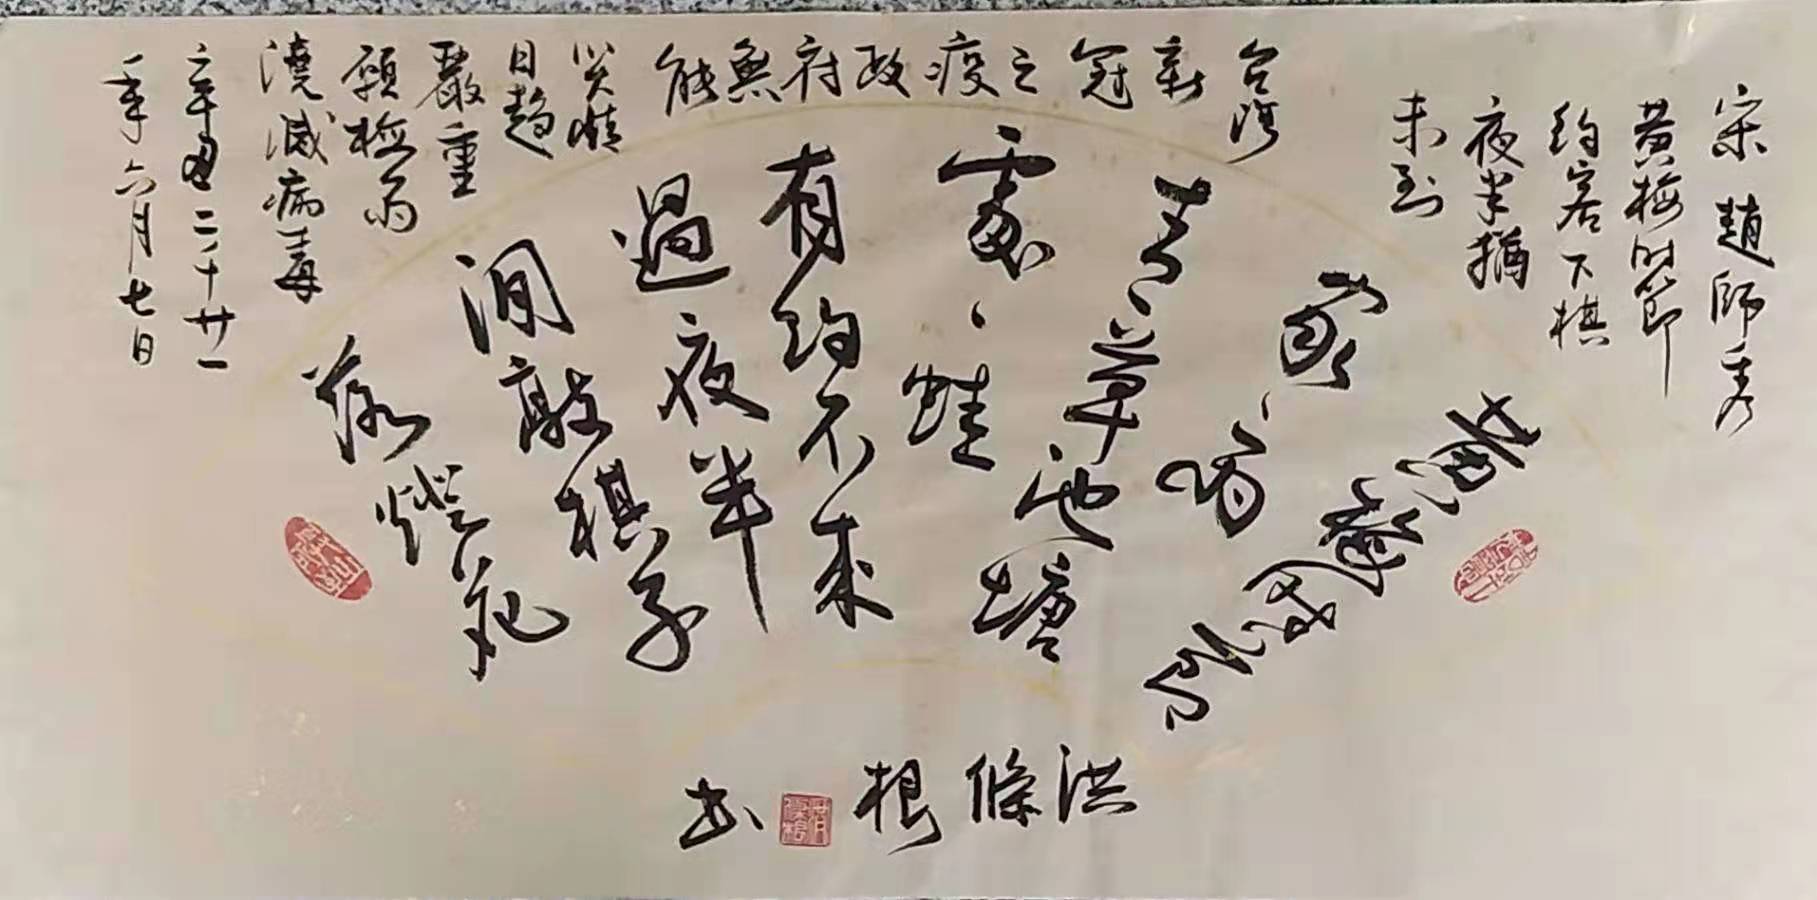 宋 趙師秀
黃梅時節
約客下棋
夜半猶
未到
黃梅時節
家、雨
青草池塘
處、蛙
有約不來
過夜半
閒敲棋子
落燈花
台灣
新冠之疫政府無能
災情
日趨
嚴重
願梅雨
澆滅病毒
辛丑二千廿一
年六月七日
洪條根書